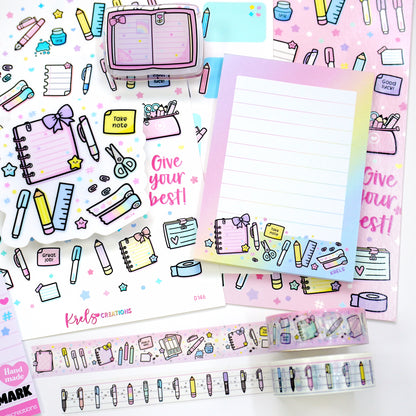 GOOD
LUCK!
Take
note
Give
your
best!
Give
your
best!
Great
job!
Take
note
KRELS
Krels CREATIONS
Hand
made
MARK